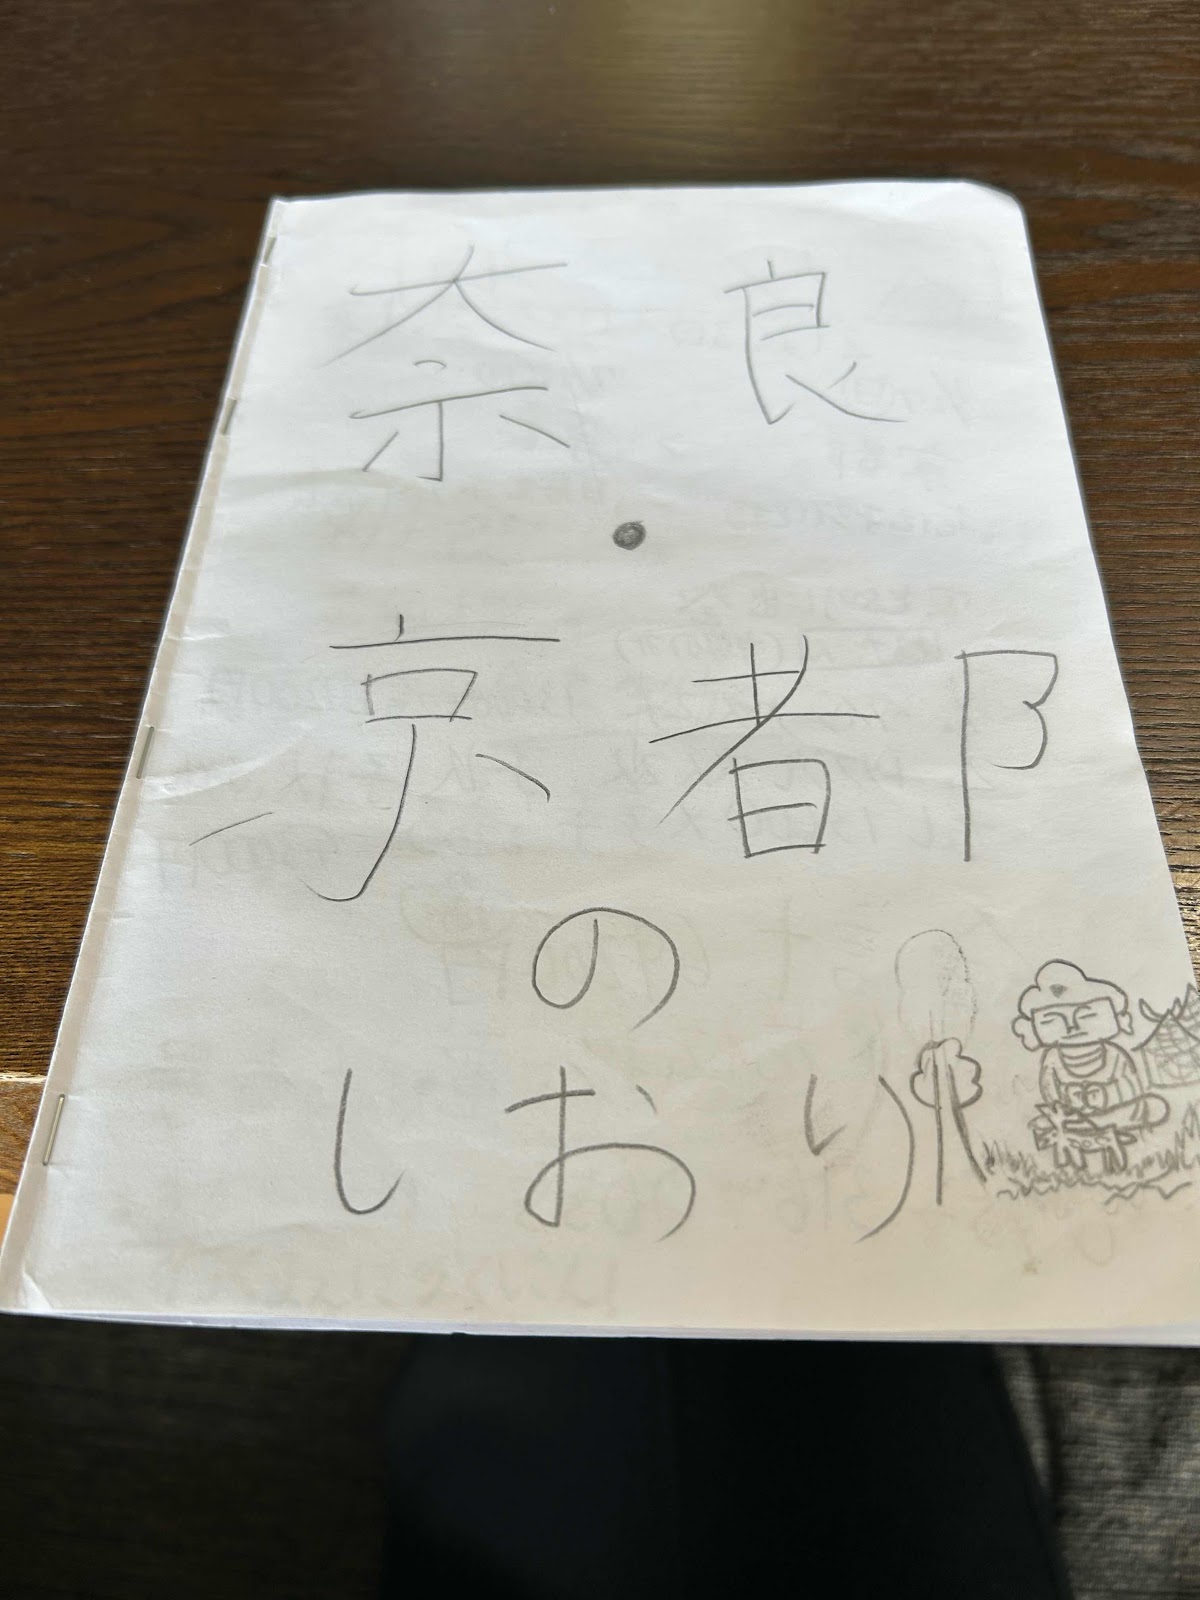 奈良
・
京都
の
しおり